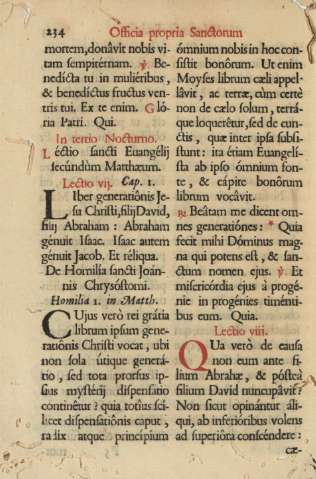 234 Officia propria Sanctorum
mortem, donâvit nobis vi-
tam sempitérnam. ℣. Be-
nedicta tu in muliéribus,
& benedíctus fructus ven-
tris tui. Ex te enim. Gló-
ria Patri. Qui.
In tertio Nocturno.
Léctio sancti Euangélij
secúndùm Matthæum.
Lectio vij. Cap. 1.
Liber generatiónis Je-
su Christi, filij David,
filij Abraham : Abraham
génuit Isaac. Isaac autem
génuit Jacob. Et réliqua.
De Homilía sancti Joân-
nis Chrysóstomi.
Homilia 1. in Matth.
CUjus verò rei grátia
librum ipsum gene-
ratiónis Christi vocat, ubi
non sola útique generá-
tio, sed tota prorsus ip-
sius mystérij dispensatio
continétur? quia totíus sci-
licet dispensatiónis caput,
radix atque princípium
ómnium nobis in hoc con-
sístit bonórum. Ut enim
Moyses librum cæli appel-
lâvit, ac terræ, cùm certè
non de cælo solum, terrá-
que loquerétur, sed de cun-
ctis, quæ inter ipsa subsi-
stunt : ita étiam Euangelí-
sta ab ipso ómnium fon-
te, & cápite bonórum
librum vocâvit.
℟. Beâtam me dicent om-
nes generatiónes : * Quia
fecit mihi Dóminus mag-
na qui potens est, & san-
ctum nomen ejus. ℣. Et
misericórdia ejus à progé-
nie in progénies timénti-
bus eum. Quia.
Lectio viii.
QUa verò de causa
non eum ante fí-
lium Abrahæ, & pósteà
filium David nuncupâvit?
Non sicut opinántur áli-
qui, ab inferióribus volens
ad superióra conscéndere :
cæ-